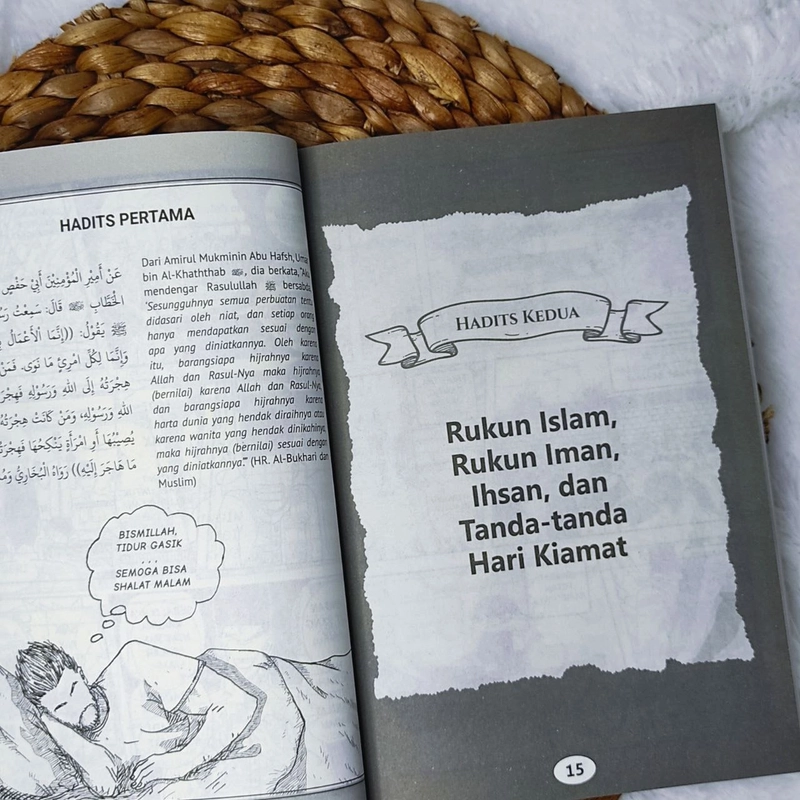 HADITS PERTAMA
عَنْ أَمِيْرِ الْمُؤْمِنِيْنَ أَبِيْ حَفْصٍ
الْخَطَّابِ ﷺ قَالَ: سَمِعْتُ
ﷺ يَقُوْلُ: ((إِنَّمَا الْأَعْمَالُ
وَإِنَّمَا لِكُلِّ امْرِئٍ مَا نَوَى. فَمَنْ
هِجْرَتُهُ إِلَى اللهِ وَرَسُوْلِهِ
اللهِ وَرَسُوْلِهِ، وَمَنْ كَانَتْ هِجْرَتُهُ
يُصِيْبُهَا أَوِ امْرَأَةٍ يَنْكِحُهَا
مَا هَاجَرَ إِلَيْهِ)) رَوَاهُ الْبُخَارِيُّ
Dari Amirul Mukminin Abu Hafsh,
bin Al-Khaththab, dia berkata,
mendengar Rasulullah ﷺ
'Sesungguhnya semua perbuatan
didasari oleh niat, dan setiap orang
hanya mendapatkan sesuai dengan
apa yang diniatkannya. Oleh karena
itu, barangsiapa hijrahnya karena
Allah dan Rasul-Nya maka hijrahnya
(bernilai) karena Allah dan Rasul-Nya,
dan barangsiapa hijrahnya karena
harta dunia yang hendak diraihnya
karena wanita yang hendak dinikahinya,
maka hijrahnya (bernilai) sesuai dengan
yang diniatkannya.'" (HR. Al-Bukhari dan
Muslim)
BISMILLAH,
TIDUR GASIK
...
SEMOGA BISA
SHALAT MALAM
HADITS KEDUA
Rukun Islam,
Rukun Iman,
Ihsan, dan
Tanda-tanda
Hari Kiamat
15